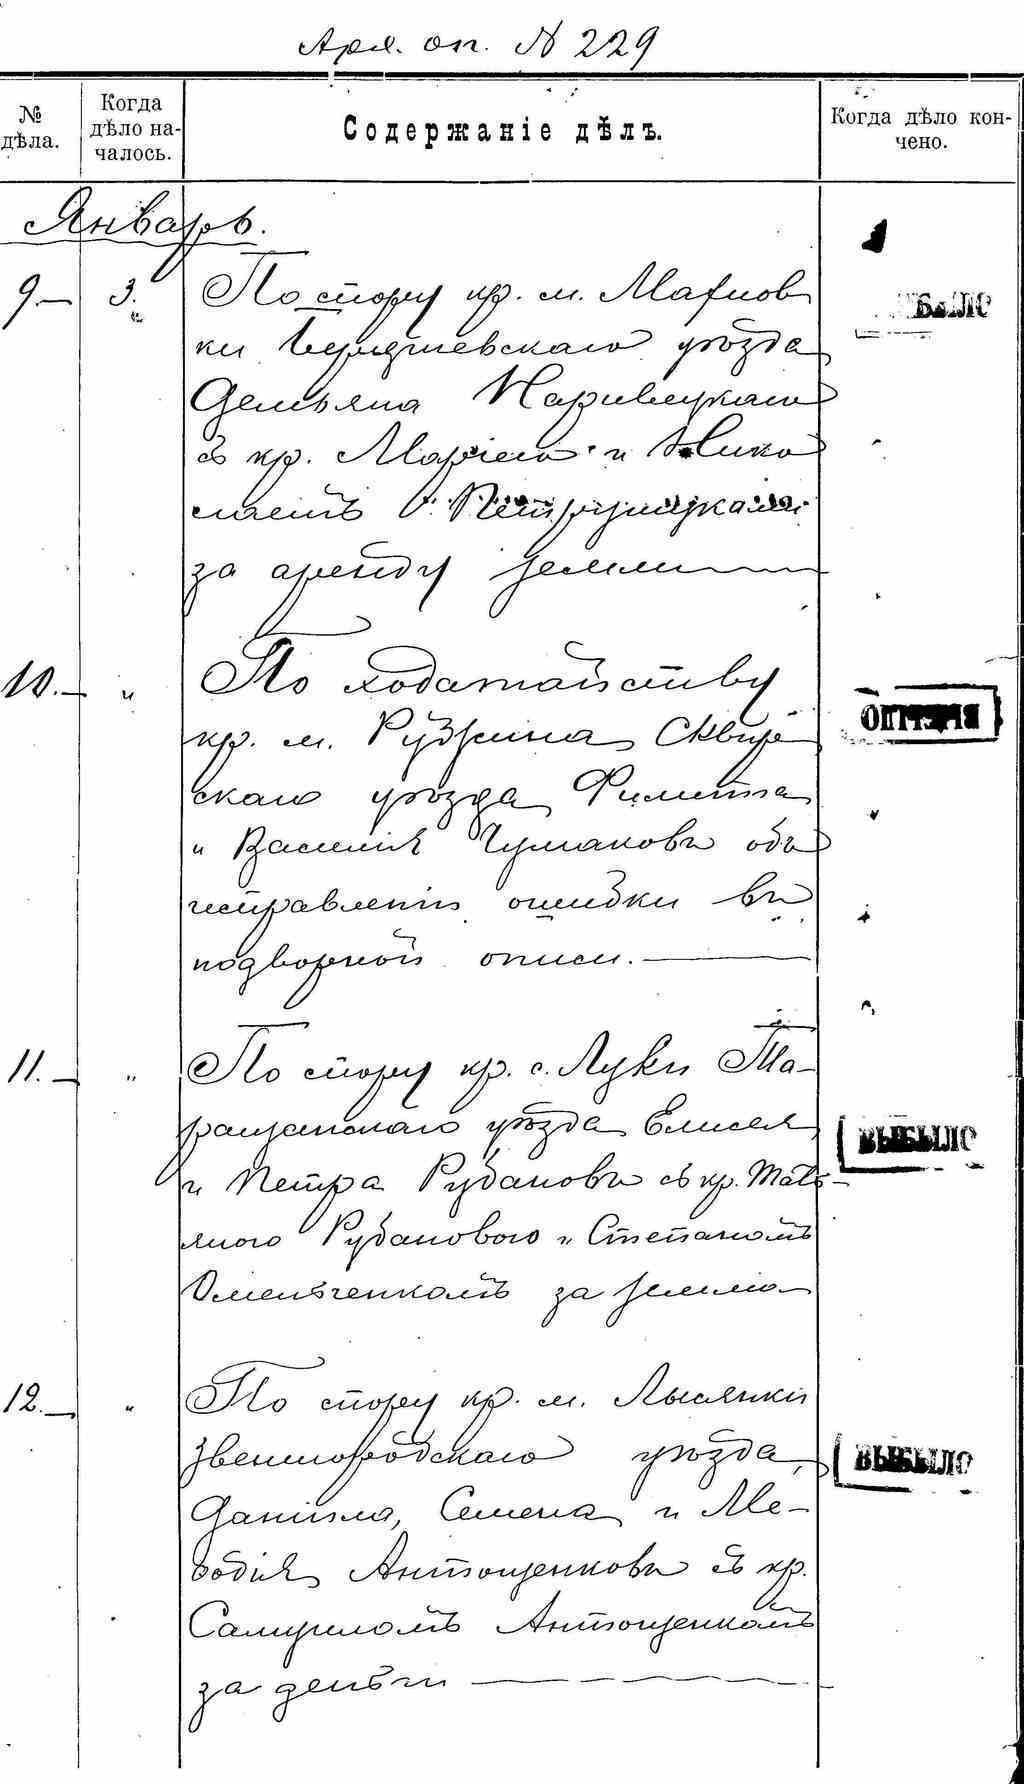 Арх. оп. № 229
№ дѣла.
Когда дѣло началось.
Содержаніе дѣлъ.
Когда дѣло кончено.
Январь.
9.— 3. По спору кр. м. Махнов
ки Бердичевскаго уѣзда
Демьяна
съ кр. Маріею и Нико
лаемъ
за аренду земли
10.— " По ходатайству
кр. м. Ружина Сквир
скаго уѣзда Филиппа
и Василія Чумаковъ объ
исправленіи ошибки въ
подворной описи.
ОПІЦІЯ
11.— " По спору кр. с. Луки Та-
ращанскаго уѣзда Елисея
и Петра Рубановъ съ кр. Тать-
яною Рубановою и Степаномъ
Омельченкомъ за землю
ВЫБЫЛО
12.— " По спору кр. м. Лысянки
Звенигородскаго уѣзда,
Даніила, Семена и Ме-
ѳодія Антощенковъ съ кр.
Самуиломъ Антощенкомъ
за деньги
ВЫБЫЛО